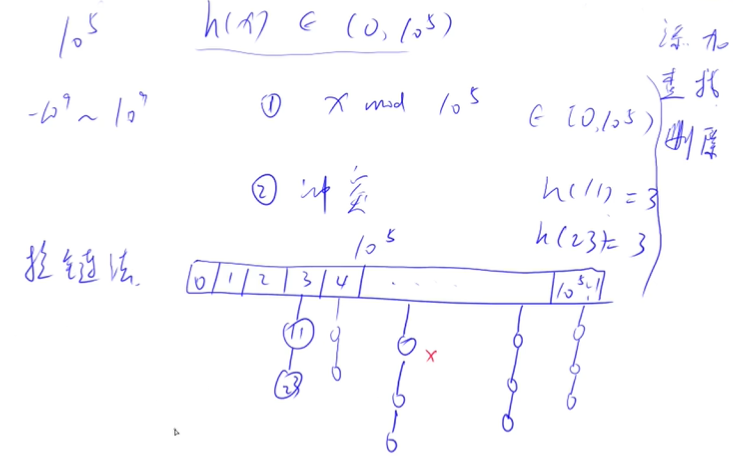 10⁵ h(x) ∈ (0, 10⁵)
-10⁹ ~ 10⁹ ① x mod 10⁵ ∈ [0, 10⁵)
② 冲突 h(11) = 3
h(23) = 3
添加
查找
删除
拉链法
10⁵
0 1 2 3 4 ..... 10⁵-1
11
23
x